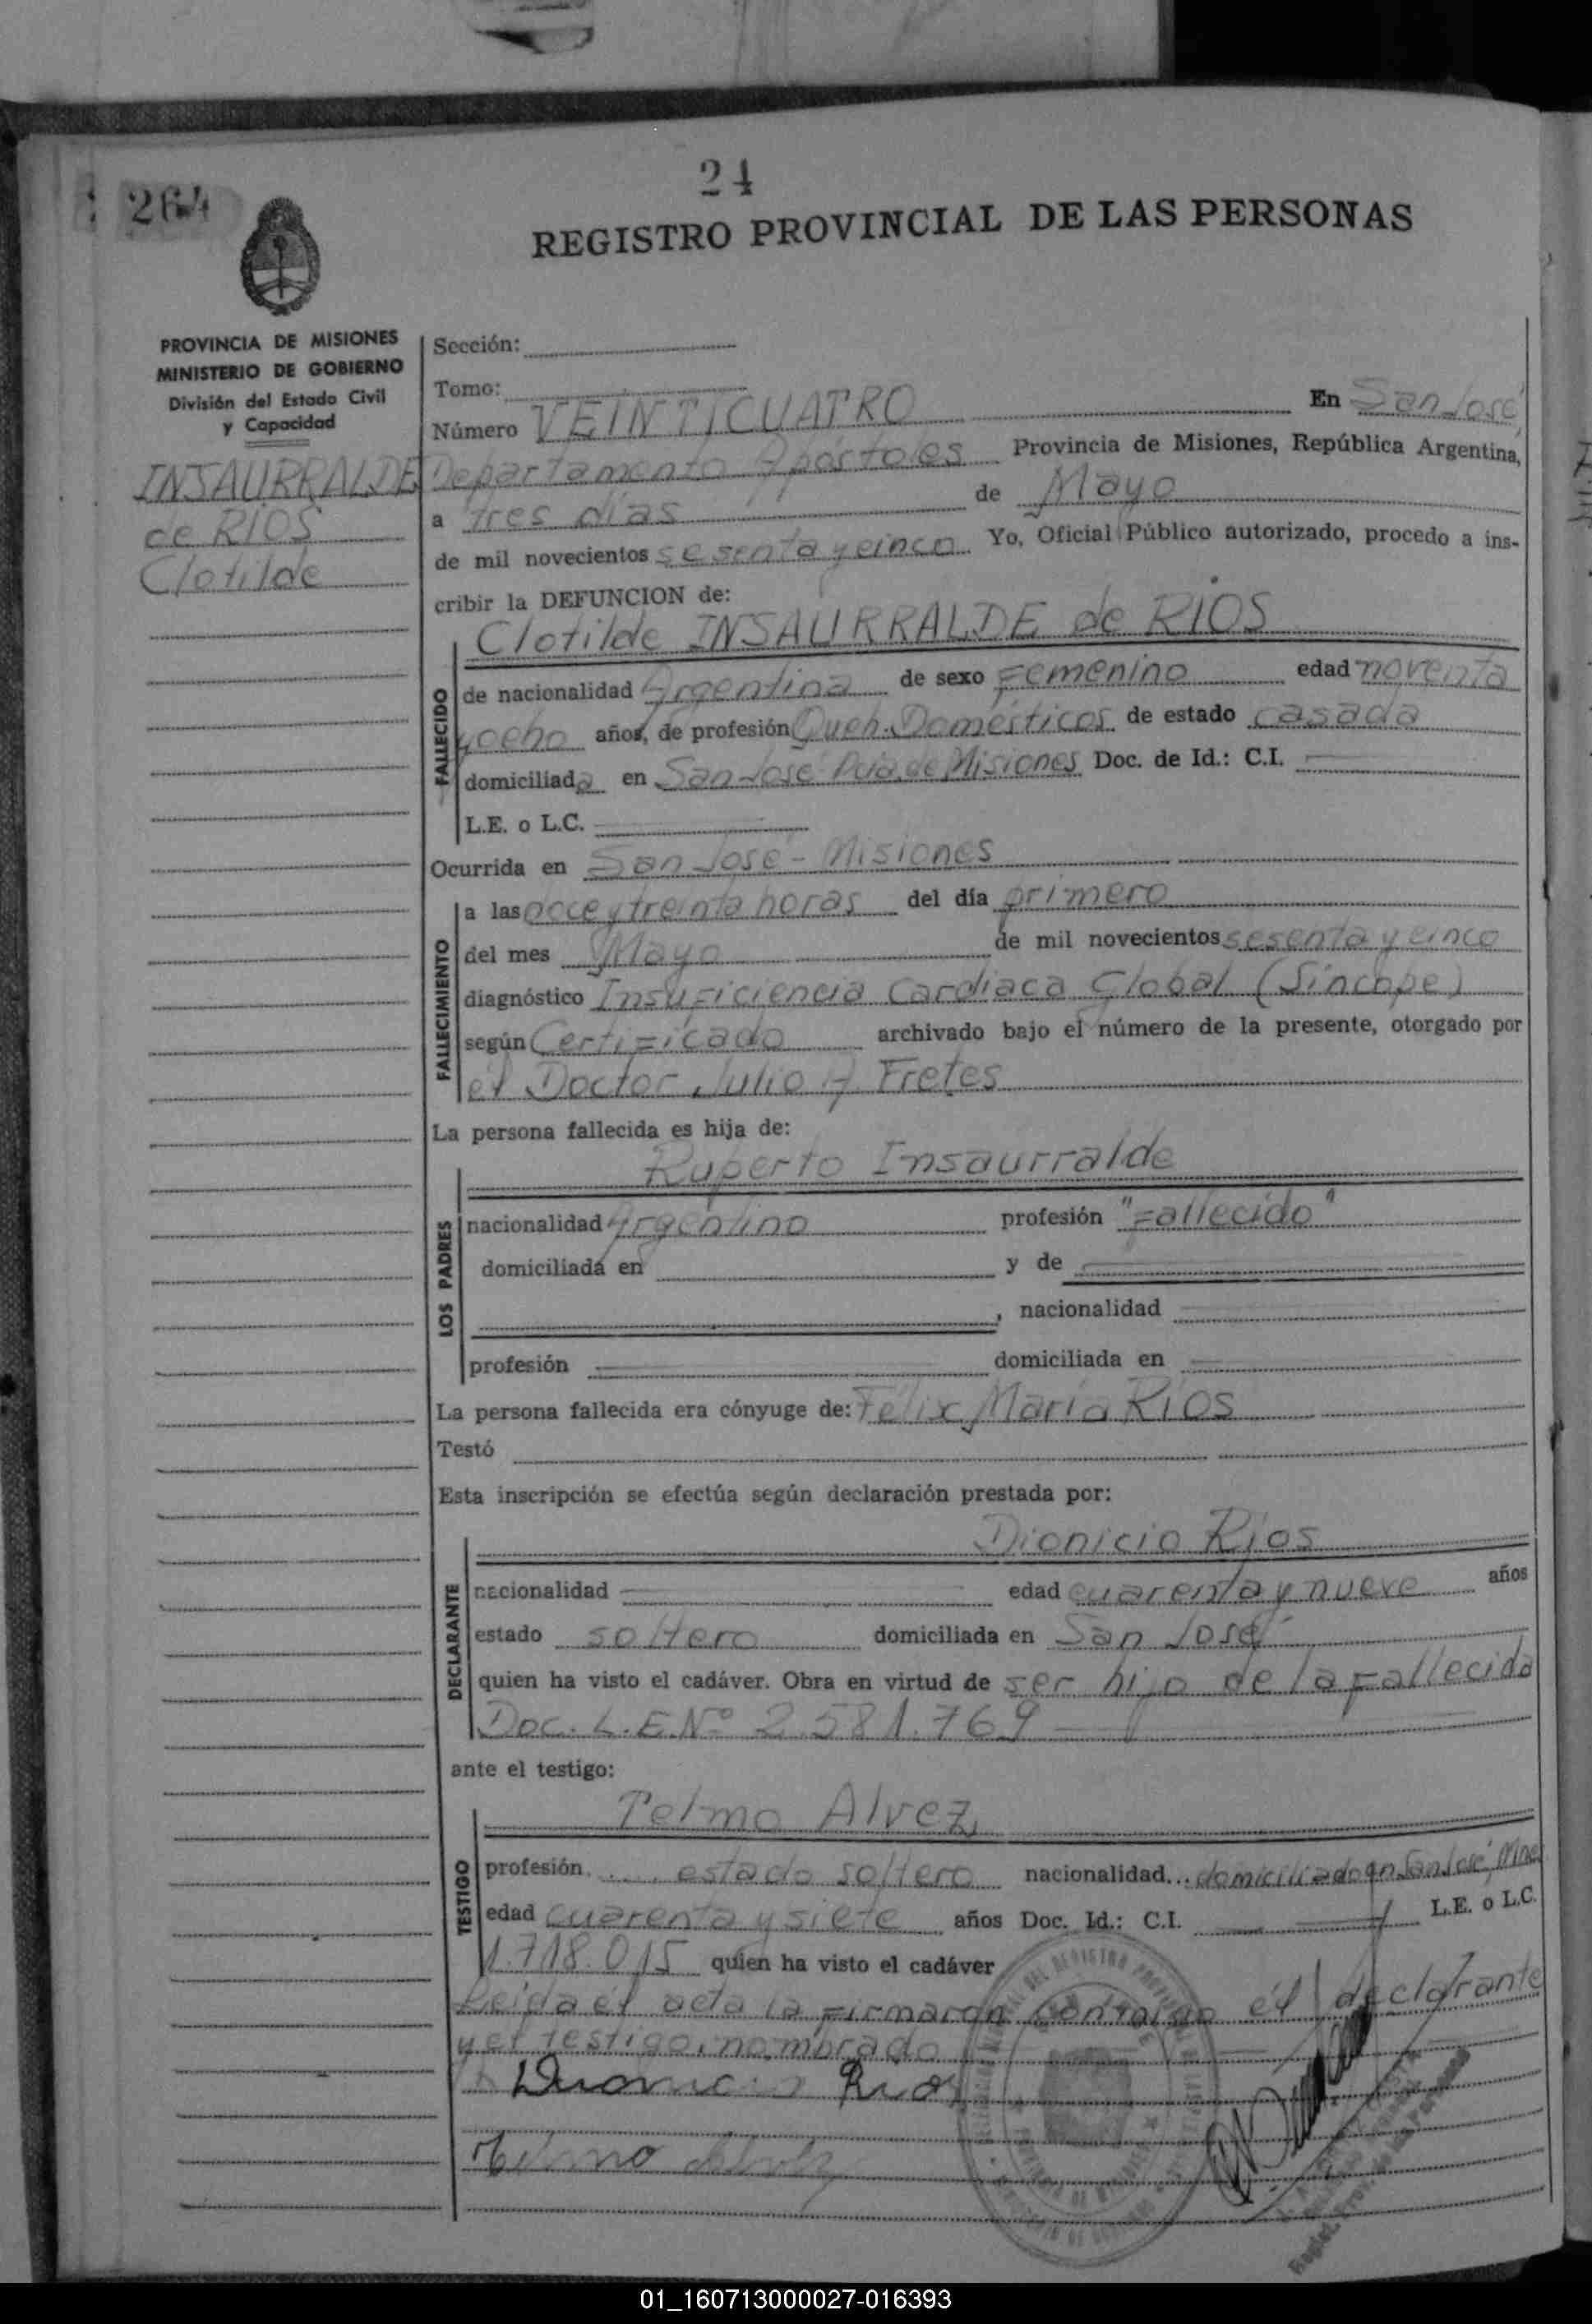 24
264
REGISTRO PROVINCIAL DE LAS PERSONAS
PROVINCIA DE MISIONES
MINISTERIO DE GOBIERNO
División del Estado Civil
y Capacidad
INSAURRALDE
de RIOS
Clotilde
Sección:
Tomo:
Número VEINTICUATRO En San José,
Departamento Apóstoles Provincia de Misiones, República Argentina,
a tres días de Mayo
de mil novecientos sesenta y cinco Yo, Oficial Público autorizado, procedo a ins-
cribir la DEFUNCION de:
Clotilde INSAURRALDE de RIOS
FALLECIDO
de nacionalidad Argentina de sexo Femenino edad noventa
y ocho años, de profesión Queh. Domésticos de estado casada
domiciliada en San José Pcia. de Misiones Doc. de Id.: C.I.
L.E. o L.C.
Ocurrida en San José - Misiones
FALLECIMIENTO
a las doce y treinta horas del día primero
del mes Mayo de mil novecientos sesenta y cinco
diagnóstico Insuficiencia Cardiaca Global (Síncope)
según Certificado archivado bajo el número de la presente, otorgado por
el Doctor Julio A. Fretes
La persona fallecida es hija de:
Ruperto Insaurralde
LOS PADRES
nacionalidad Argentino profesión "Fallecido"
domiciliada en y de
, nacionalidad
profesión domiciliada en
La persona fallecida era cónyuge de: Félix María RIOS
Testó
Esta inscripción se efectúa según declaración prestada por:
Dionicio Rios
DECLARANTE
nacionalidad edad cuarenta y nueve años
estado soltero domiciliada en San José
quien ha visto el cadáver. Obra en virtud de ser hijo de la fallecida
Doc. L.E. Nº 2.581.769
ante el testigo:
Telmo Alvez
TESTIGO
profesión. estado soltero nacionalidad. domiciliado en San José, Mnes
edad cuarenta y siete años Doc. Id.: C.I. L.E. o L.C.
1.718.015 quien ha visto el cadáver
Leida el acta la firmaron conmigo el declarante
y el testigo, nombrado
Dionicio Rios
Telmo Alvez
01_160713000027-016393